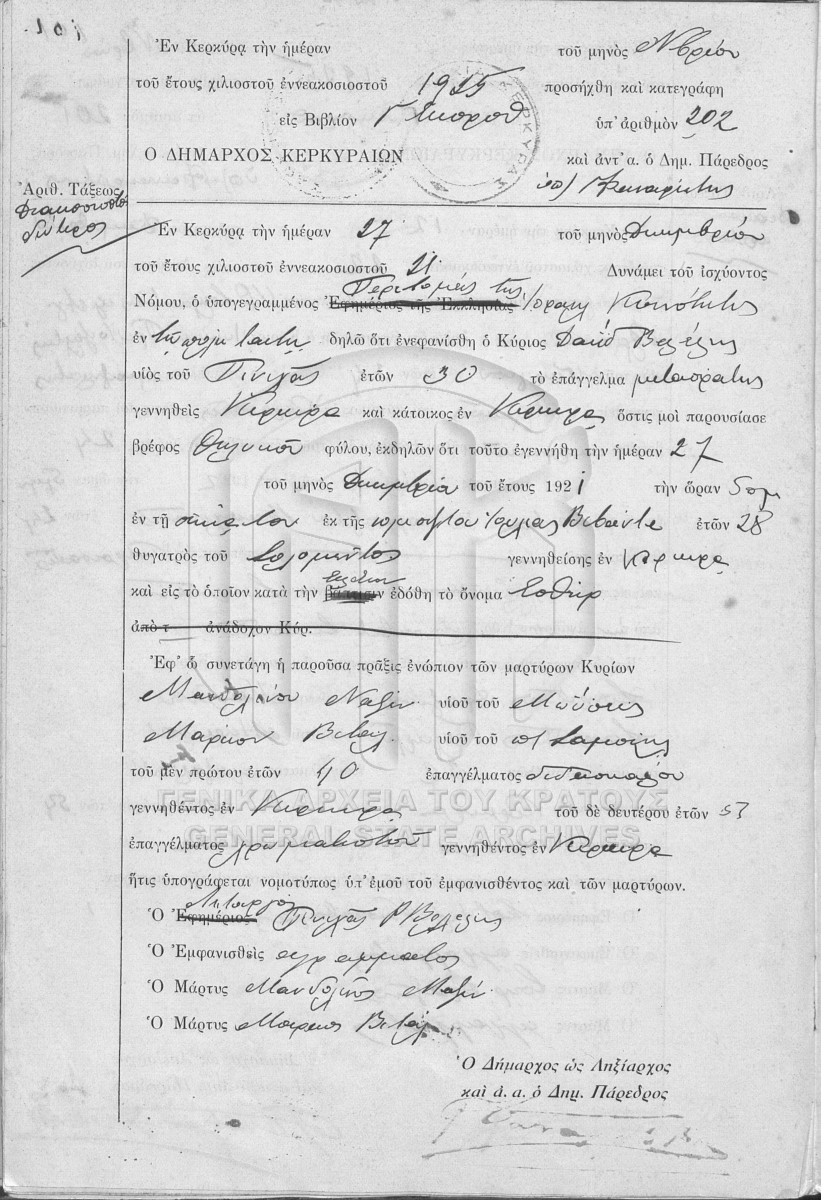 Ἐν Κερκύρᾳ τὴν ἡμέραν τοῦ μηνὸς Νβρίου
τοῦ ἔτους χιλιοστοῦ ἐννεακοσιοστοῦ 1925 προσήχθη καὶ κατεγράφη
εἰς Βιβλίον ὑπ' ἀριθμὸν 202
Ο ΔΗΜΑΡΧΟΣ ΚΕΡΚΥΡΑΙΩΝ καὶ ἀντ' α. ὁ Δημ. Πάρεδρος
Ἀριθ. Τάξεως
Διακοσιοστὸς
δεύτερος
Ἐν Κερκύρᾳ τὴν ἡμέραν 27 τοῦ μηνὸς Δεκεμβρίου
τοῦ ἔτους χιλιοστοῦ ἐννεακοσιοστοῦ 21 Δυνάμει τοῦ ἰσχύοντος
Περιτομεὺς της
Νόμου, ὁ ὑπογεγραμμένος Ἐφημέριος τῆς Ἐκκλησίας Ἰσραηλ Κοινότητος
ἐν τῇ πόλει ταύτῃ δηλῶ ὅτι ἐνεφανίσθη ὁ Κύριος Δαυίδ Βελέλης
υἱὸς τοῦ Πινχᾶς ἐτῶν 30 τὸ ἐπάγγελμα μεταπράτης
γεννηθεὶς Κέρκυρα καὶ κάτοικος ἐν Κέρκυρα ὅστις μοὶ παρουσίασε
βρέφος θηλυκοῦ φύλου, ἐκδηλῶν ὅτι τοῦτο ἐγεννήθη τὴν ἡμέραν 27
τοῦ μηνὸς Δεκεμβρίου τοῦ ἔτους 1921 τὴν ὥραν 5
ἐν τῇ οἰκίᾳ του ἐκ τῆς Βιβάντε ἐτῶν 28
θυγατρὸς τοῦ Σολομῶντος γεννηθείσης ἐν Κέρκυρα
καὶ εἰς τὸ ὁποῖον κατὰ τὴν βάπτισιν ἐδόθη τὸ ὄνομα Ἐσθὴρ
ἀπὸ τ ἀνάδοχον Κύρ.
Ἐφ' ᾧ συνετάγη ἡ παροῦσα πρᾶξις ἐνώπιον τῶν μαρτύρων Κυρίων
Μανδολίνου υἱοῦ τοῦ Μωύσεως
Μάρκου Βιτάλ υἱοῦ τοῦ Σαμουὴλ
τοῦ μὲν πρώτου ἐτῶν 40 ἐπαγγέλματος διδασκάλου
ΓΕΝΙΚΑ ΑΡΧΕΙΑ ΤΟΥ ΚΡΑΤΟΥΣ
γεννηθέντος ἐν Κέρκυρα τοῦ δὲ δευτέρου ἐτῶν 53
GENERAL STATE ARCHIVES
ἐπαγγέλματος γεννηθέντος ἐν Κέρκυρα
ἥτις ὑπογράφεται νομοτύπως ὑπ' ἐμοῦ τοῦ ἐμφανισθέντος καὶ τῶν μαρτύρων.
Ὁ Ἐφημέριος Πινχᾶς Ρ Βελέλης
Ὁ Ἐμφανισθεὶς αγράμματος
Ὁ Μάρτυς Μανδολῖνος
Ὁ Μάρτυς Μάρκος Βιτάλ
Ὁ Δήμαρχος ὡς Ληξίαρχος
καὶ ἀ. α. ὁ Δημ. Πάρεδρος